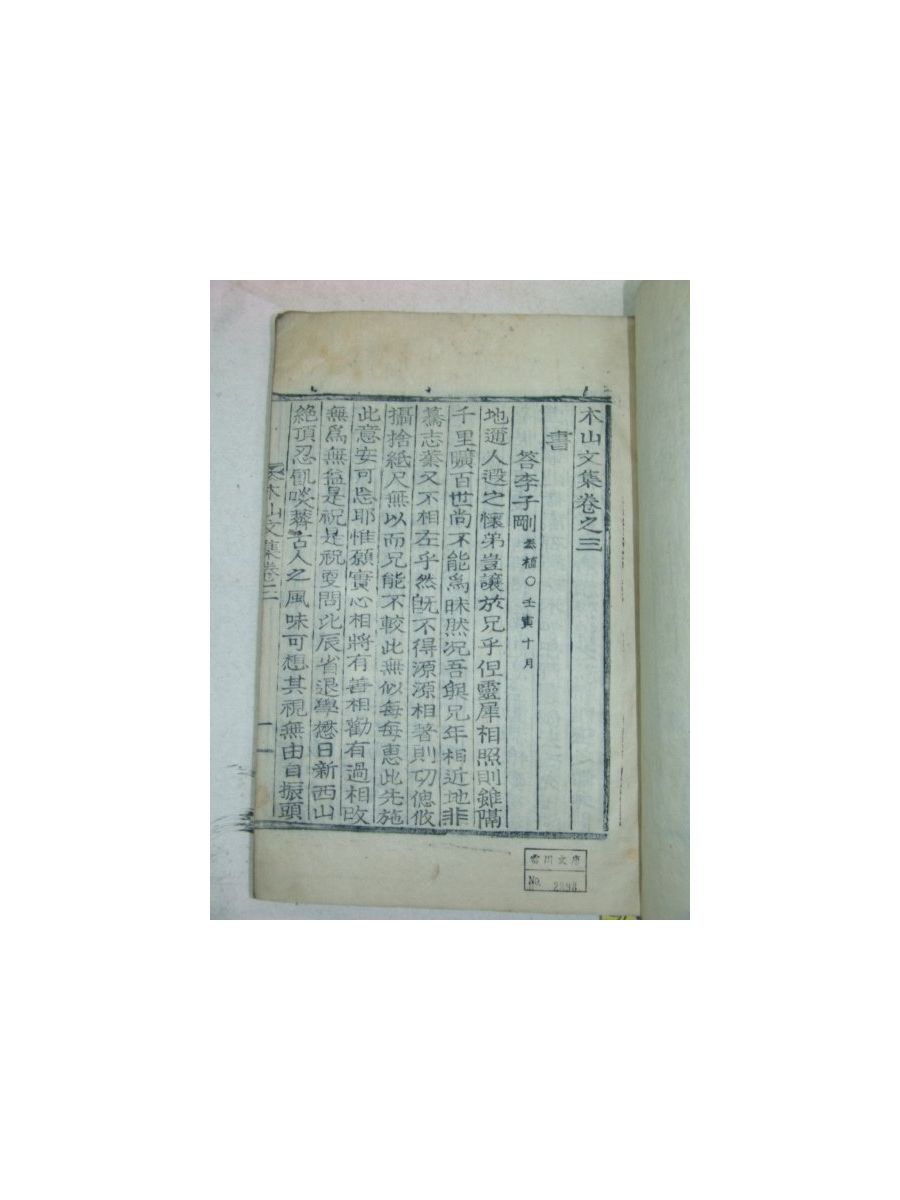 木山文集卷之三
書
答李子剛 〇壬寅十月
地邇人遐之懷弟豈讓於兄乎但靈犀相照則雖隔
千里曠百世尚不能爲昧然況吾與兄年相近地非
驀志業又不相左乎然旣不得源源相著則切偲攸
攝捨紙尺無以而兄能不較此無似每每惠此先施
此意安可忘耶惟願實心相將有善相勸有過相改
無爲無益是祝是祝更問比辰省退學懋日新西山
絶頂忍飢啖薺古人之風味可想其視無由自振頭
木山文集卷三
一
雪川文庫
No. 2898